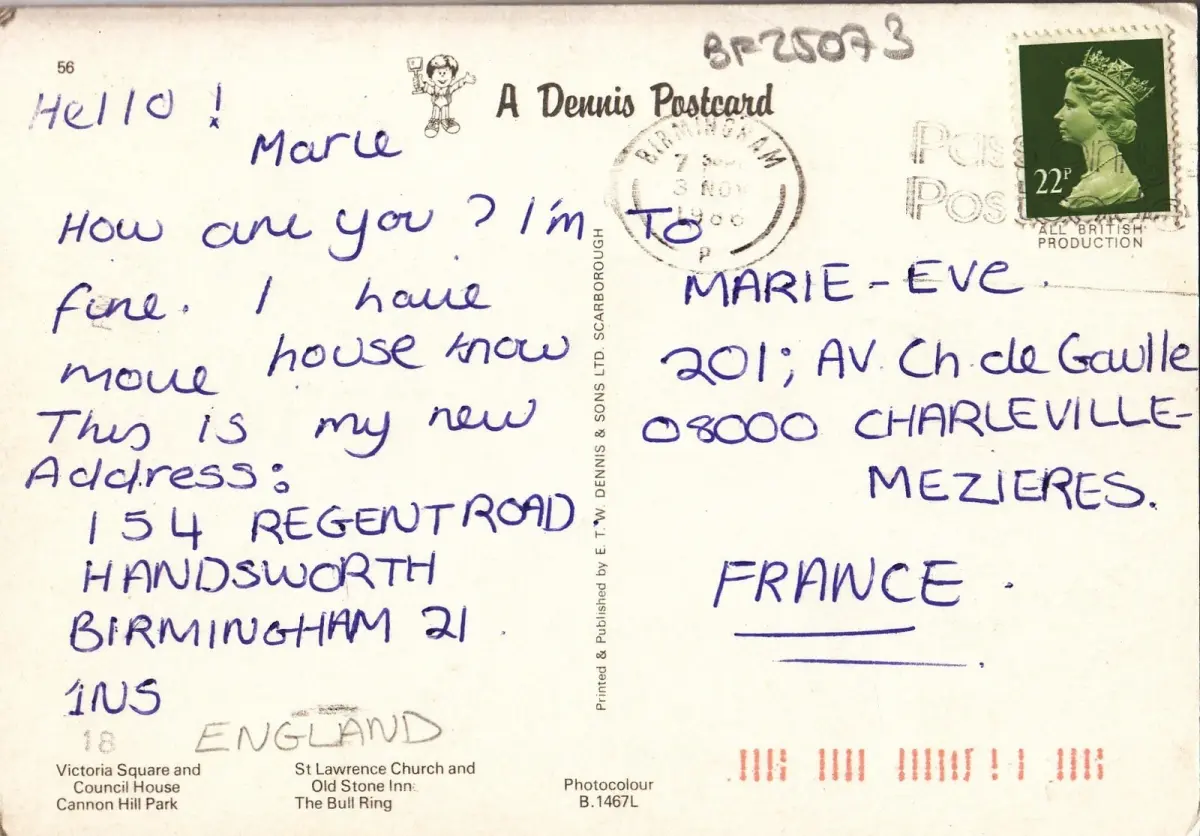 56
BF25073
A Dennis Postcard
Hello !
Marie
How are you ? I'm
fine. I have
move house know
This is my new
Address:
154 REGENT ROAD
HANDSWORTH
BIRMINGHAM 21
1NS
18
ENGLAND
Victoria Square and
Council House
Cannon Hill Park
St Lawrence Church and
Old Stone Inn
The Bull Ring
Printed & Published by E. T. W. DENNIS & SONS LTD. SCARBOROUGH
Photocolour
B.1467L
BIRMINGHAM
3 NOV
P
22P
ALL BRITISH
PRODUCTION
TO
MARIE-EVE.
201; AV. Ch. de Gaulle
08000 CHARLEVILLE-
MEZIERES.
FRANCE.